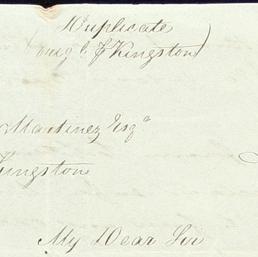 Duplicate
Kingston)
Martinez Esqr
Kingston
My Dear Sir